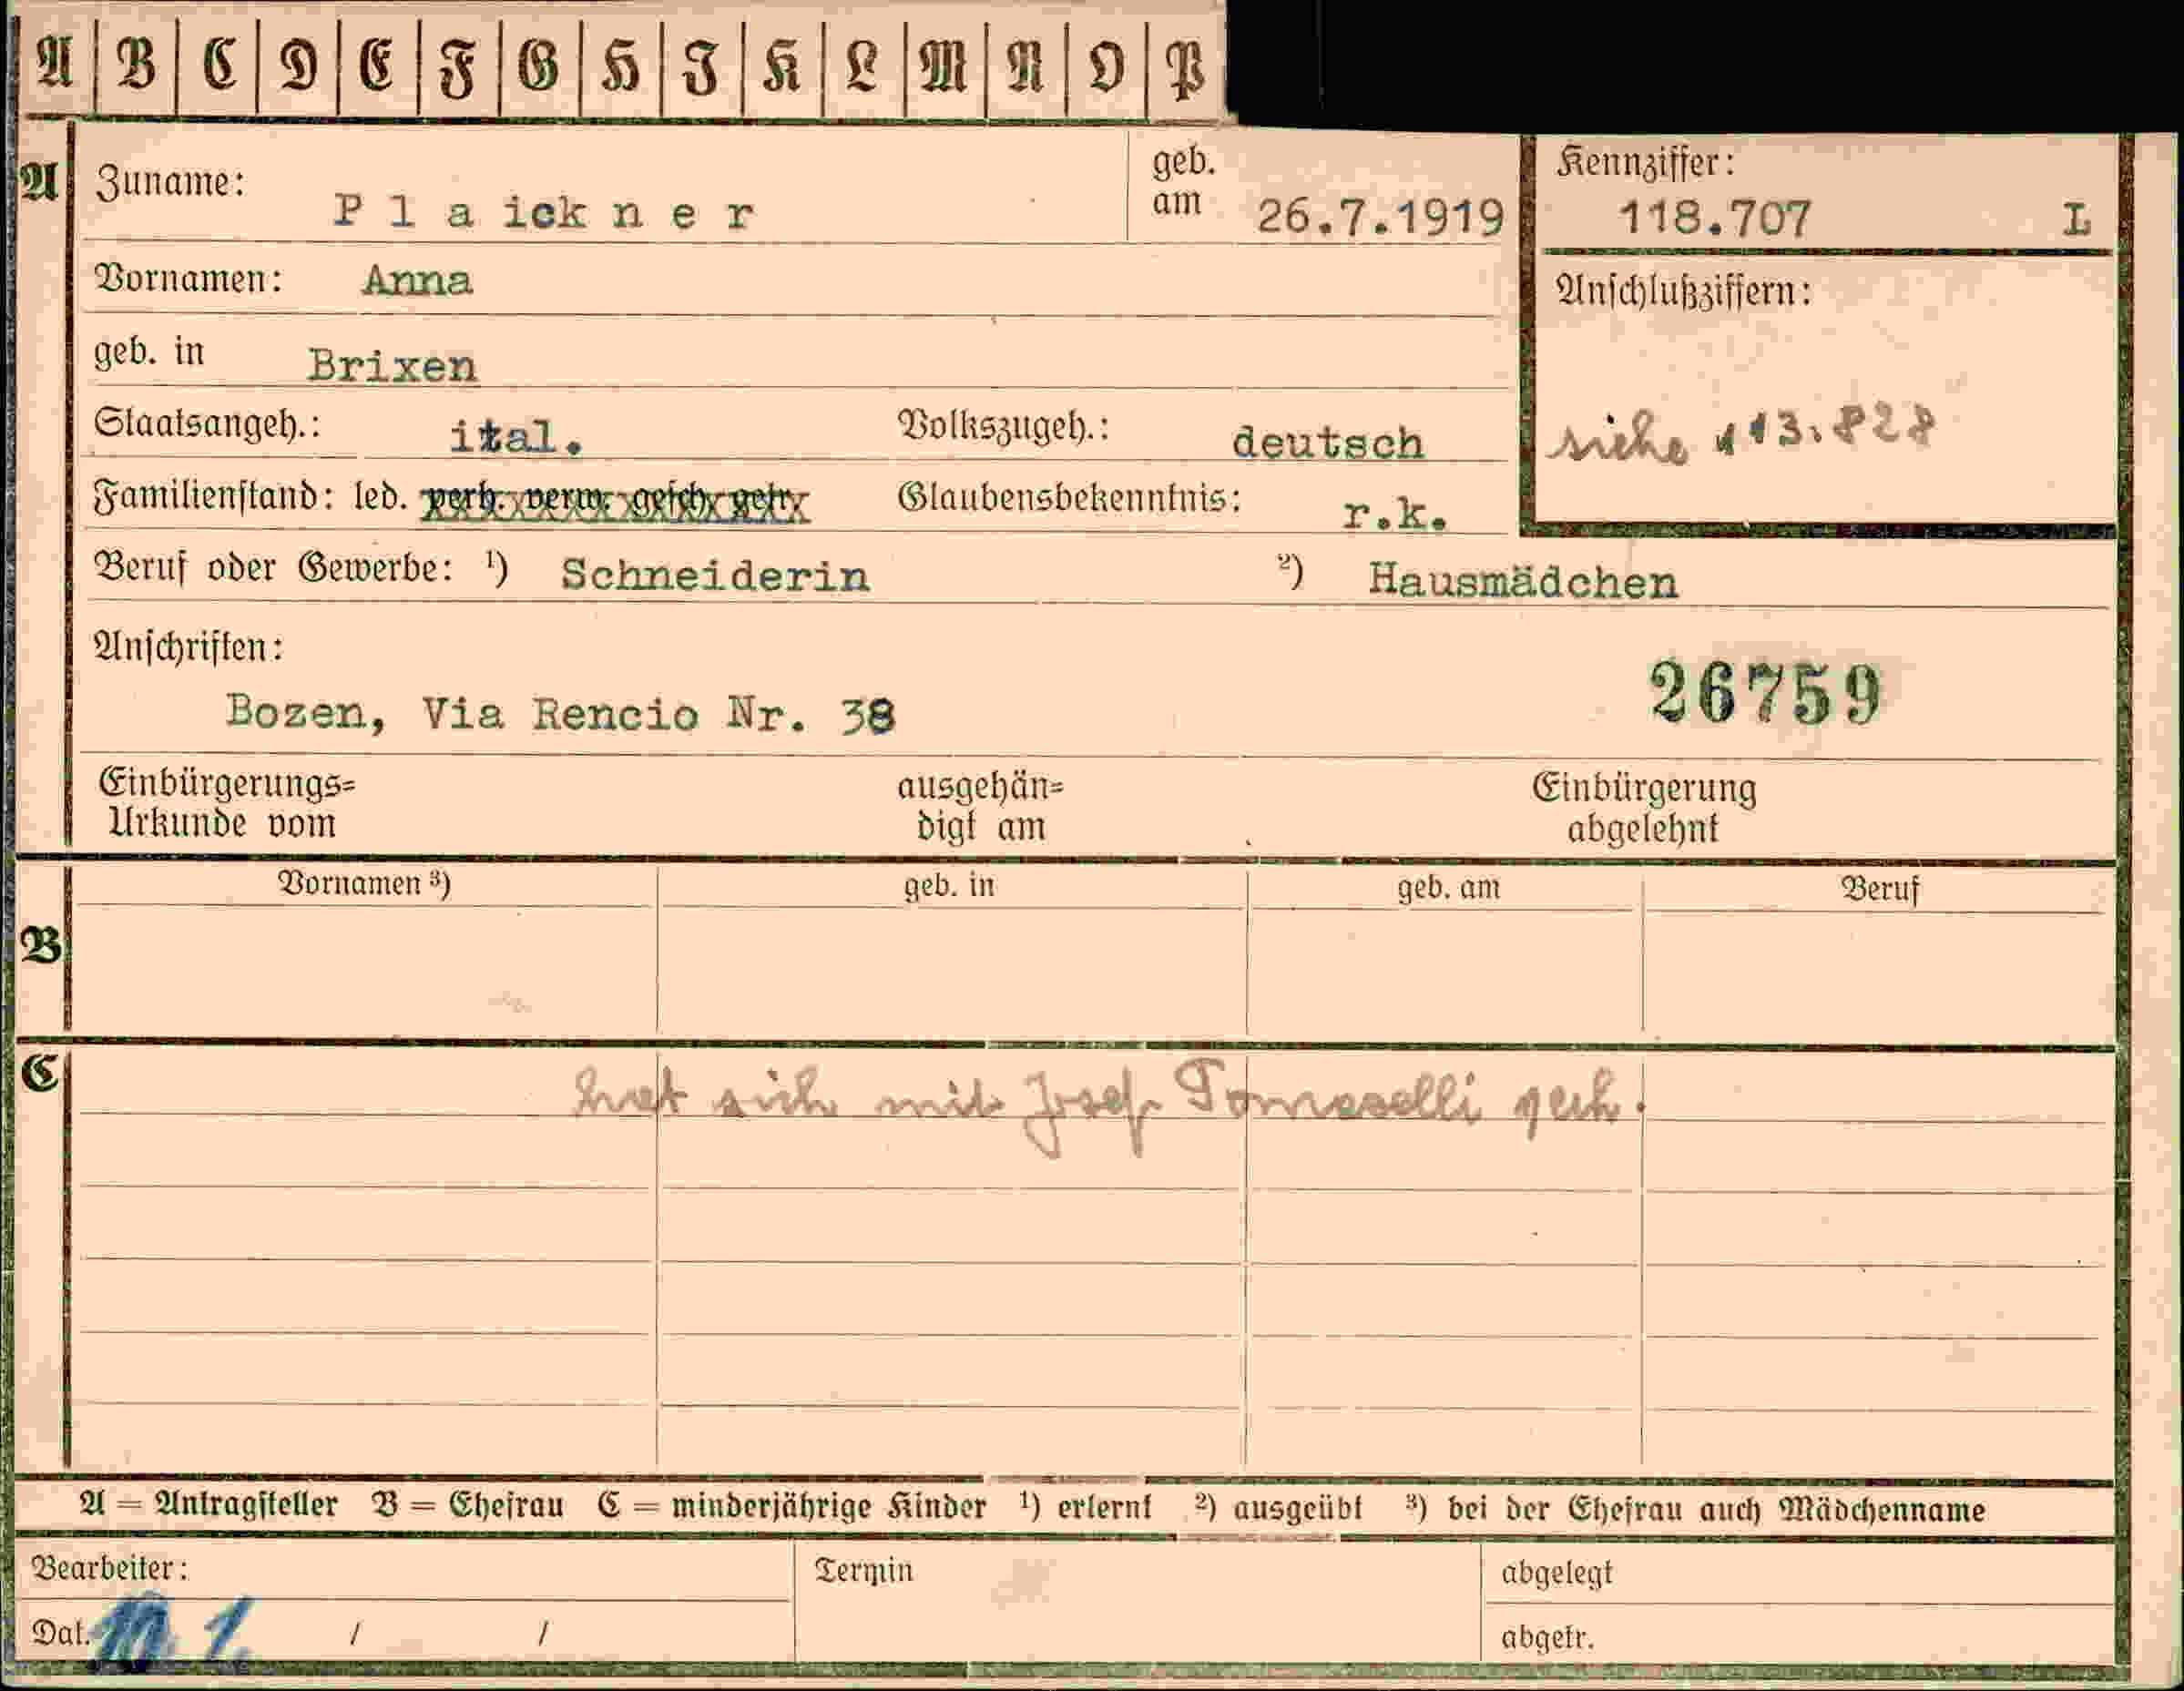 A B C D E F G H I K L M N O P
A Zuname: Plaickner geb. am 26.7.1919 Kennziffer: 118.707 L
Vornamen: Anna Anschlußziffern:
geb. in Brixen
Staatsangeh.: ital. Volkszugeh.: deutsch siehe 113.828
Familienstand: led. verh. verw. gesch. getr. Glaubensbekenntnis: r.k.
Beruf oder Gewerbe: ¹) Schneiderin ²) Hausmädchen
Anschriften:
Bozen, Via Rencio Nr. 38 26759
Einbürgerungs= ausgehän= Einbürgerung
Urkunde vom digt am abgelehnt
Vornamen ³) geb. in geb. am Beruf
B
C hat sich mit Josef Tomaselli
A = Antragsteller B = Ehefrau C = minderjährige Kinder ¹) erlernt ²) ausgeübt ³) bei der Ehefrau auch Mädchenname
Bearbeiter: Termin abgelegt
Dat. / / abgetr.